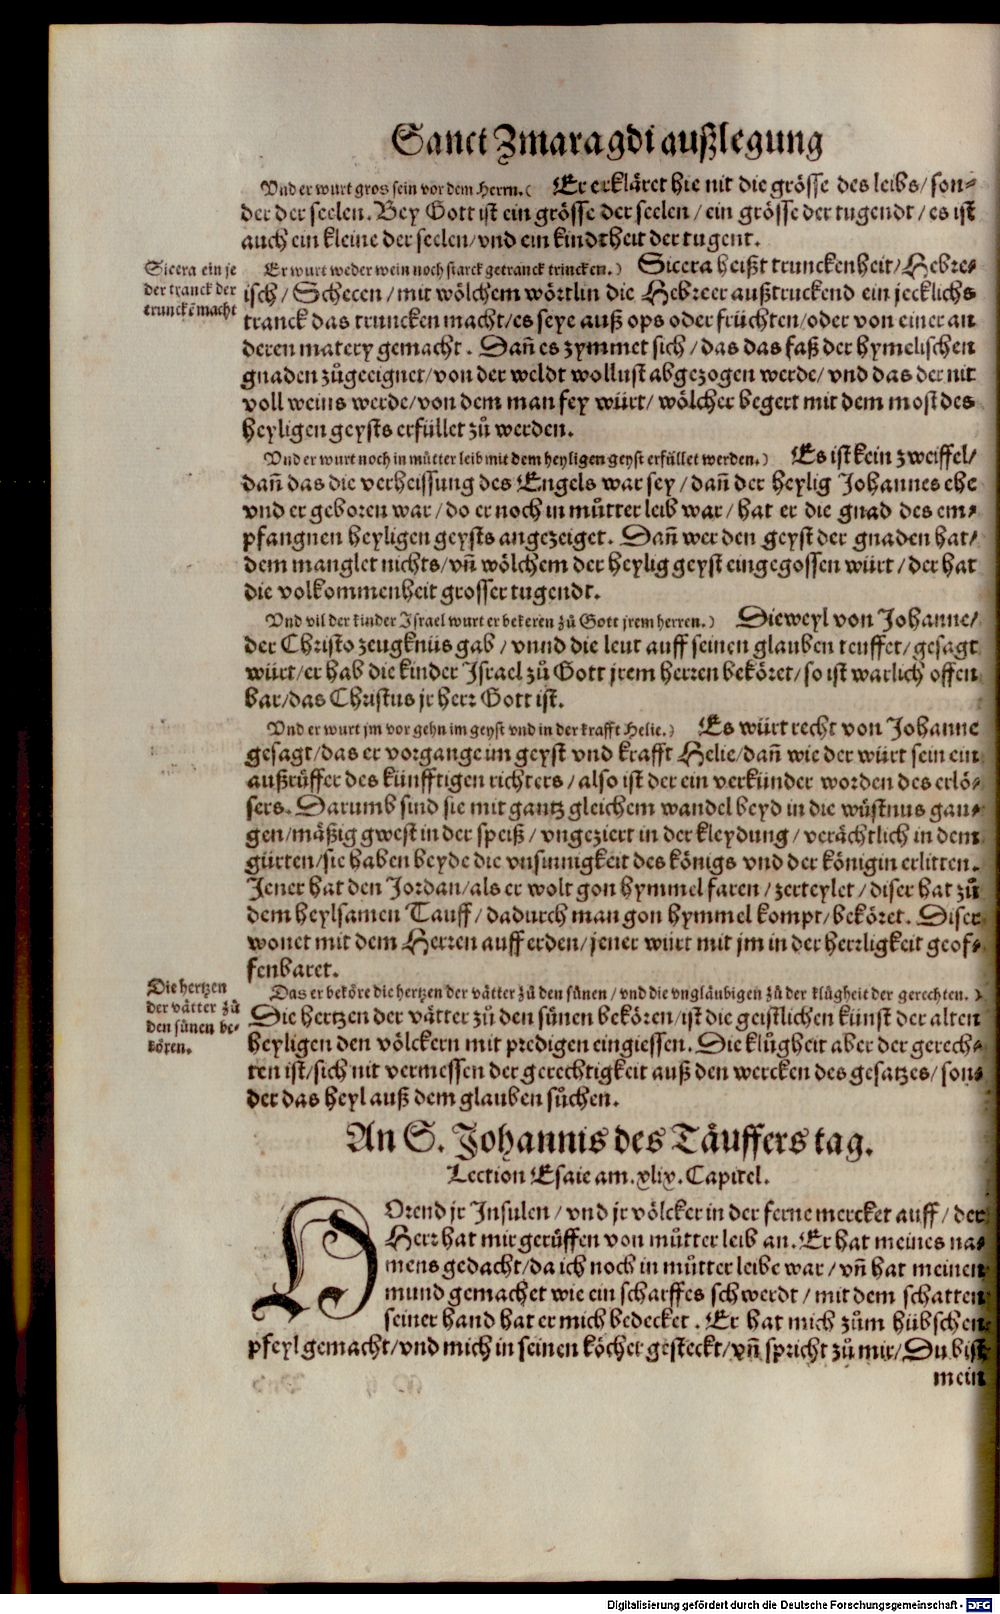 Sanct Zmaragdi außlegung
Vnd er wurt gros sein vor dem Herrn.( Er erkläret hie nit die grösse des leibs/ son-
der der seelen. Bey Gott ist ein grösse der seelen / ein grösse der tugendt / es ist
auch ein kleine der seelen/ vnd ein kindtheit der tugent.
Sicera ein je
der tranck der
trunckē macht
Er wurt weder wein noch starck getranck trincken.) Sicera heißt trunckenheit/ Hebre-
isch / Schecen / mit wölchem wörtlin die Hebreer außtruckend ein jecklichs
tranck das truncken macht/ es seye auß ops oder früchten/ oder von einer an
deren matery gemacht . Dañ es zymmet sich / das das faß der hymelischen
gnaden zůgeeignet/ von der weldt wollust abgezogen werde/ vnd das der nit
voll weins werde/ von dem man sey würt/ wölcher begert mit dem most des
heyligen geysts erfüllet zů werden.
Vnd er wurt noch in můtter leib mit dem heyligen geyst erfüllet werden.) Es ist kein zweiffel/
dañ das die verheissung des Engels war sey / dañ der heylig Johannes ehe
vnd er geboren war / do er noch in můtter leib war / hat er die gnad des em-
pfangnen heyligen geysts angezeiget. Dañ wer den geyst der gnaden hat/
dem manglet nichts/ vñ wölchem der heylig geyst eingegossen würt / der hat
die volkommenheit grosser tugendt.
Vnd vil der kinder Israel wurt er bekeren zů Gott jrem herren.) Dieweyl von Johanne/
der Christo zeugknüs gab / vnnd die leut auff seinen glauben teuffet/ gesagt
würt/ er hab die kinder Israel zů Gott jrem herren beköret/ so ist warlich offen
bar/ das Christus jr herr Gott ist.
Vnd er wurt jm vor gehn im geyst vnd in der krafft Helie.) Es würt recht von Johanne
gesagt/ das er vorgange im geyst vnd krafft Helie/ dañ wie der würt sein ein
außrüffer des künfftigen richters / also ist der ein verkünder worden des erlö-
sers. Darumb sind sie mit gantz gleichem wandel beyd in die wüstnus gan-
gen/ mäßig gwest in der speiß / vngeziert in der kleydung / verächtlich in dem
gürten/ sie haben beyde die vnsinnigkeit des königs vnd der königin erlitten.
Jener hat den Jordan/ als er wolt gon hymmel faren / zerteylet / diser hat zů
dem heylsamen Tauff / dadurch man gon hymmel kompt/ beköret. Diser
wonet mit dem Herren auff erden/ jener würt mit jm in der herrligkeit geof-
fenbaret.
Die hertzen
der vätter zů
den sünen be-
kören.
Das er beköre die hertzen der vätter zů den sünen / vnd die vngläubigen zů der klůgheit der gerechten. )
Die hertzen der vätter zů den sünen bekören/ ist die geistlichen künst der alten
heyligen den völckern mit predigen eingiessen. Die klůgheit aber der gerech-
ten ist/ sich nit vermessen der gerechtigkeit auß den wercken des gesatzes/ son-
der das heyl auß dem glauben sůchen.
An S. Johannis des Täuffers tag.
Lection Esaie am. xlix. Capitel.
HOrend jr Insulen / vnd jr völcker in der ferne mercket auff / der
Herr hat mir gerůffen von můtter leib an. Er hat meines na-
mens gedacht/ da ich noch in můtter leibe war / vñ hat meinen
mund gemachet wie ein scharffes schwerdt / mit dem schatten
seiner hand hat er mich bedecket . Er hat mich zům hübschen
pfeyl gemacht/ vnd mich in seinen köcher gesteckt/ vñ spricht zů mir/ Du bist
mein
Digitalisierung gefördert durch die Deutsche Forschungsgemeinschaft - DFG